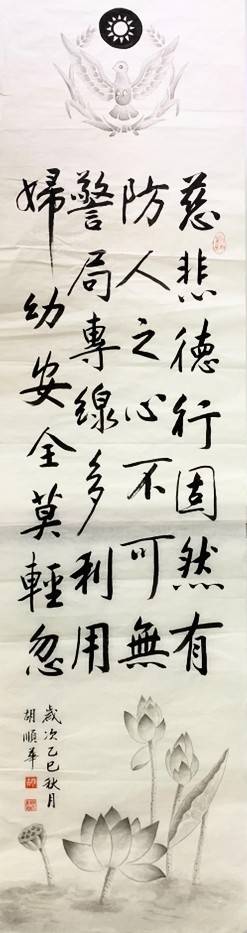 慈悲德行固然有
防人之心不可無
警局專線多利用
婦幼安全莫輕忽
歲次乙巳秋月
胡順華